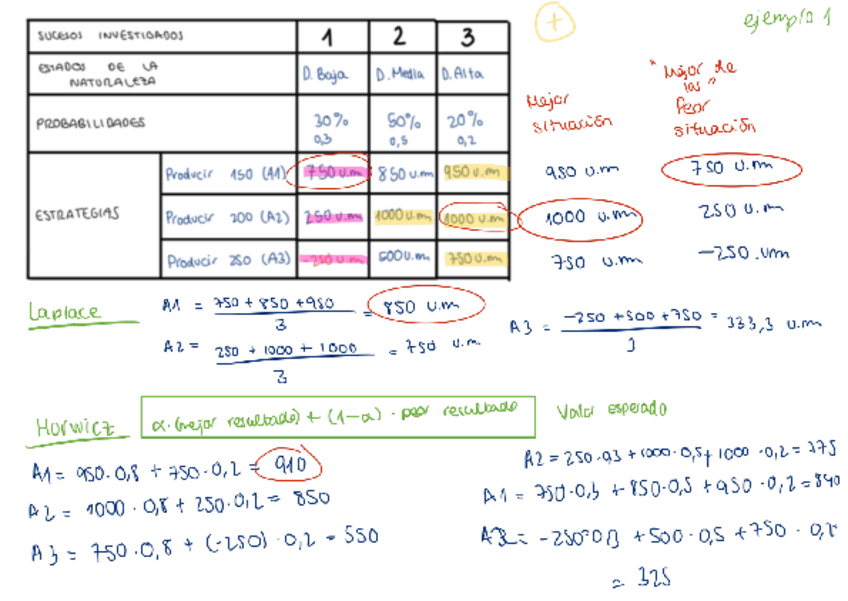 ejemplo 1
SUCESOS INVESTIGADOS 1 2 3
ESTADOS DE LA NATURALEZA D. Baja D. Media D. Alta
PROBABILIDADES 30% 50% 20%
0,3 0,5 0,2
Mejor situación
"Mejor de las" Peor situación
ESTRATEGIAS
Producir 150 (A1) 750 u.m 850 u.m 950 u.m 950 u.m 750 u.m
Producir 200 (A2) 250 u.m 1000 u.m 1000 u.m 1000 u.m 250 u.m
Producir 250 (A3) -250 u.m 500 u.m 750 u.m 750 u.m -250 .um
Laplace
A1 = 750 + 850 + 950 / 3 = 850 u.m
A2 = 250 + 1000 + 1000 / 3 = 750 u.m
A3 = -250 + 500 + 750 / 3 = 333,3 u.m
Horwicz
α·(mejor resultado) + (1-α) · peor resultado
A1 = 950·0,8 + 750·0,2 = 910
A2 = 1000 · 0,8 + 250·0,2 = 850
A3 = 750·0,8 + (-250) · 0,2 = 550
Valor esperado
A2 = 250·0,3 + 1000·0,5 + 1000·0,2 = 775
A1 = 750·0,3 + 850·0,5 + 950·0,2 = 840
A3 = -250·0,3 + 500·0,5 + 750·0,2
= 325